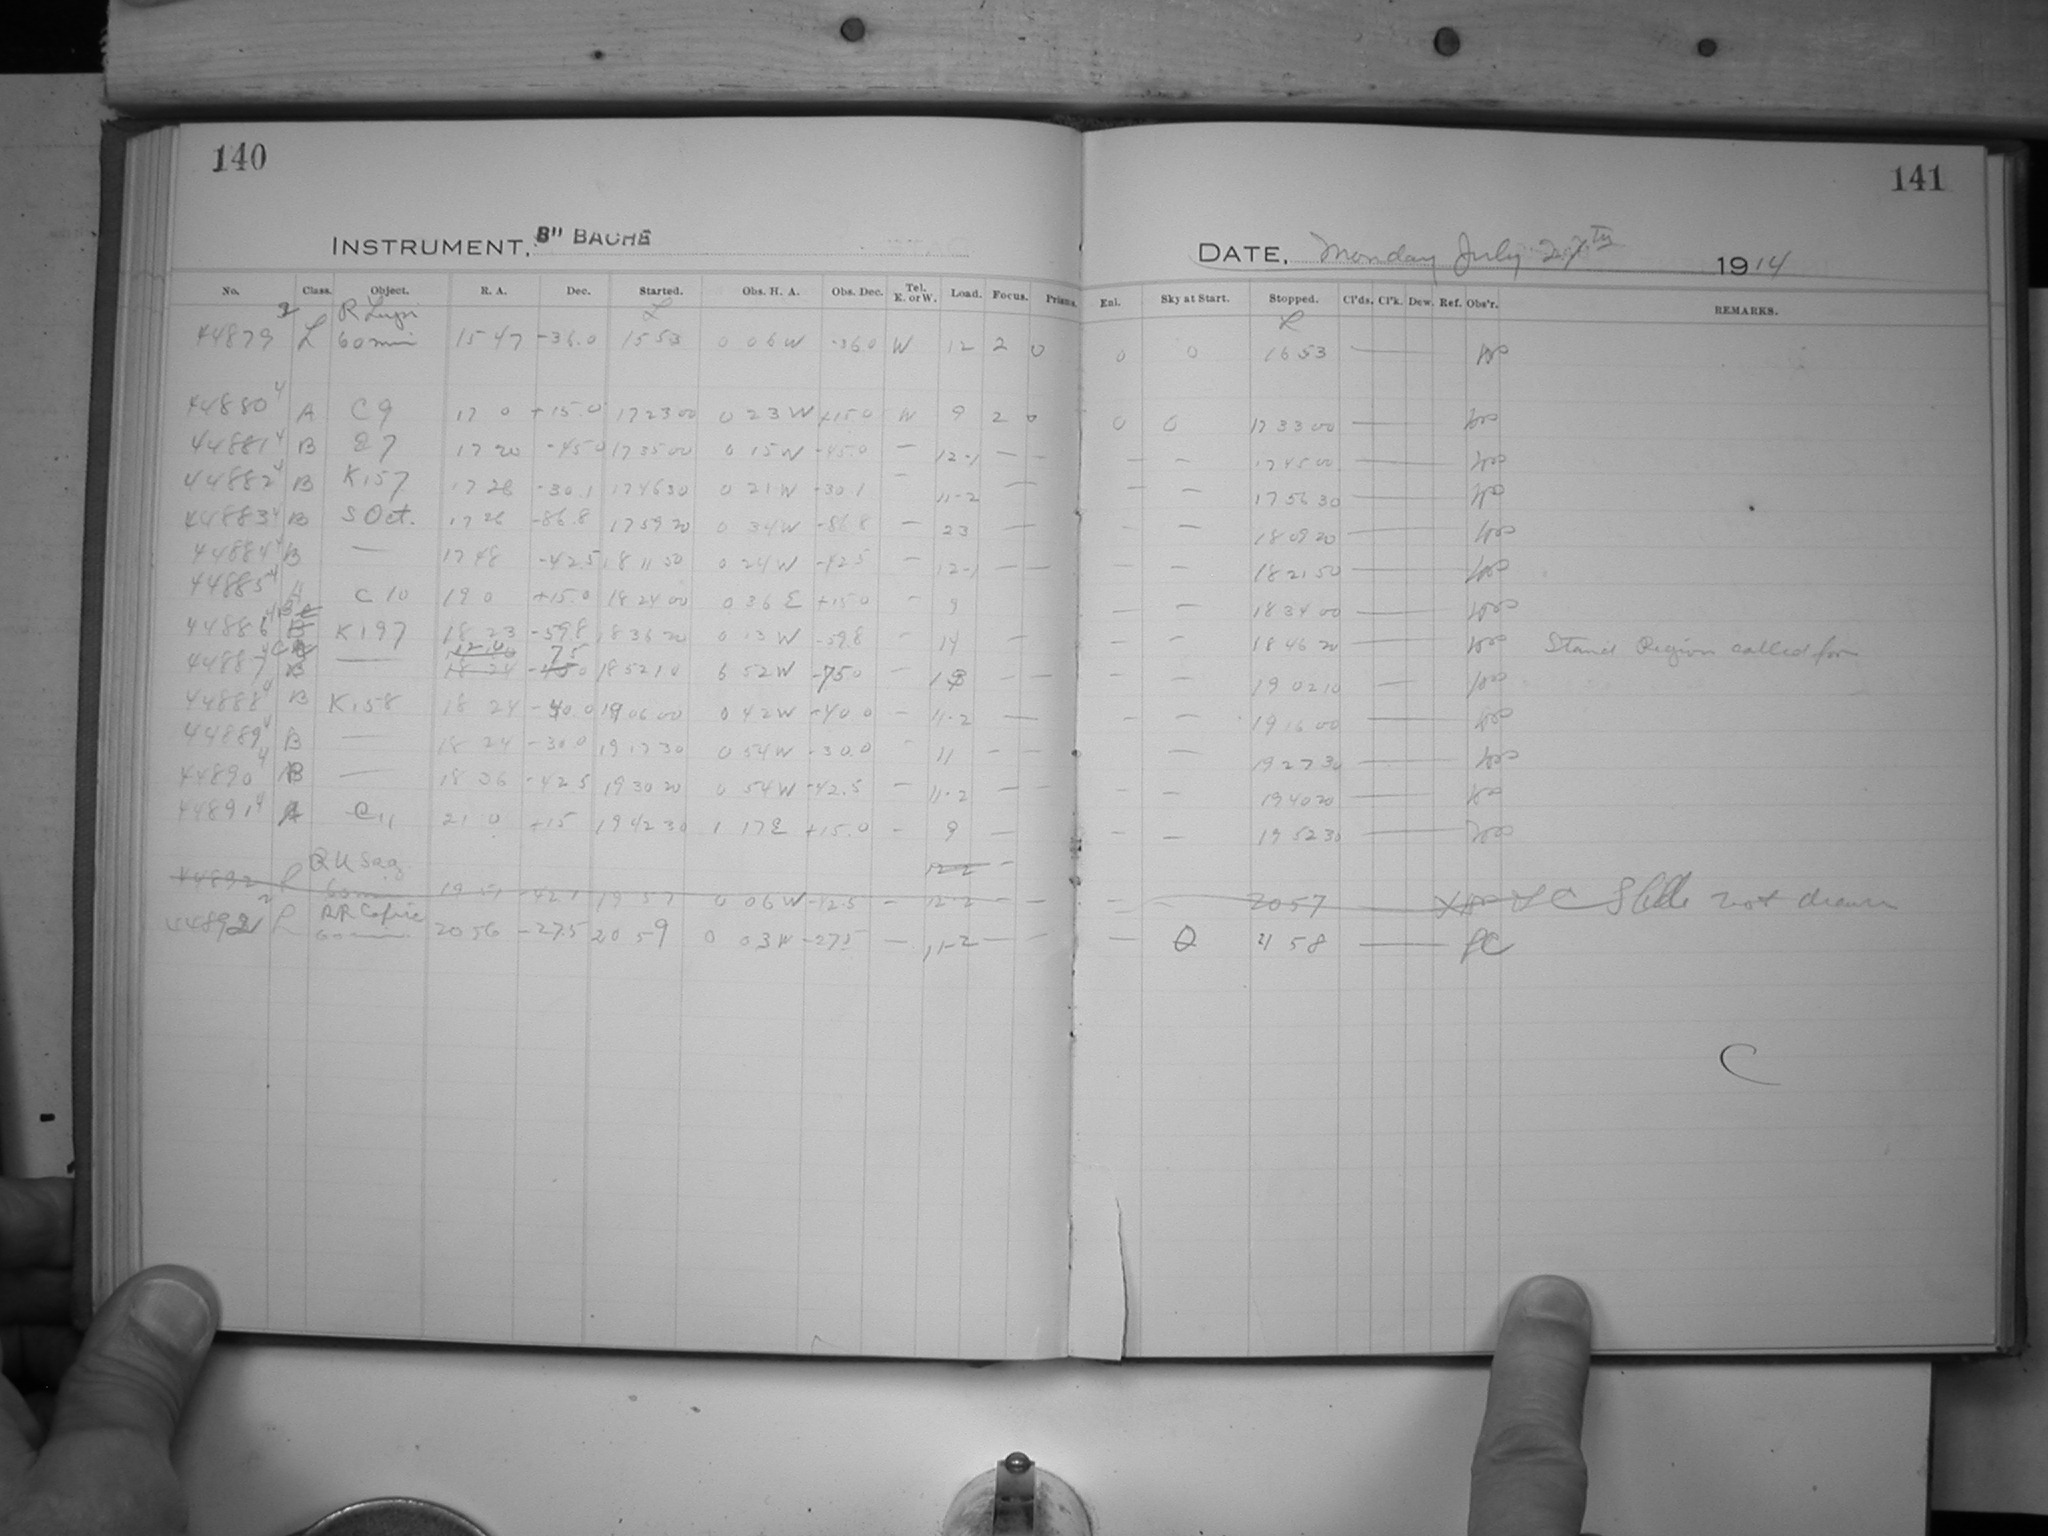 140
INSTRUMENT, 8" BACHE
No. Class. Object. R. A. Dec. Started. Obs. H. A. Obs. Dec. Tel. E. or W. Load. Focus. Prisms.
2 R Lupi L
44879 L 60 min 15 47 -36.0 15 53 0 06 W -36.0 W 12 2 0
44880 4 A C9 17 0 +15.0 17 23 00 0 23 W +15.0 W 9 2 0
44881 4 B E7 17 20 -45.0 17 35 00 0 15 W -45.0 — 12-1 — —
44882 4 B K157 17 28 -30.1 17 46 30 0 21 W -30.1 — 11-2 —
44883 4 B S Oct. 17 26 -86.8 17 59 20 0 34 W -86.8 — 23 —
44884 4 B — 17 48 -42.5 18 11 50 0 24 W -42.5 — 12-1 — —
44885 4 A C 10 19 0 +15.0 18 24 00 0 36 E +15.0 — 9
44886 4 B K197 18 23 -59.8 18 36 20 0 13 W -59.8 — 14 —
12 0 75
44887 4 — 18 24 -45.0 18 52 10 6 52 W -75.0 — — —
44888 4 B K158 18 24 -40.0 19 06 00 0 42 W -40.0 — 11-2 —
44889 4 B — 18 24 -30.0 19 17 30 0 54 W -30.0 — 11 — —
44890 4 B — 18 36 -42.5 19 30 20 0 54 W -42.5 — 11-2 — —
44891 4 A C11 21 0 +15 19 42 30 1 17 E +15.0 — 9 —
RU Sag. 12-2 —
44892 L 60 min 19 51 -42.1 19 57 0 06 W -42.5 — 12-2 — —
2 RR Capric
44892 L 60 min 20 56 -27.5 20 59 0 03 W -27.5 — 11-2 — —
141
DATE, Monday July 27th 1914
Enl. Sky at Start. Stopped. Cl'ds. Cl'k. Dew. Ref. Obs'r. REMARKS.
L
0 0 16 53 —
0 0 17 33 00 —
— — 17 45 00 —
— — 17 56 30 —
— — 18 09 20 —
— — 18 21 50 —
— — 18 34 00 —
— — 18 46 20 — Stand Region called for
— — 19 02 10 —
— — 19 16 00 —
— 19 27 30 —
— — 19 40 20 —
— — 19 52 30 —
— — 20 57 — LC Slide not drawn
— 0 21 58 — LC
C